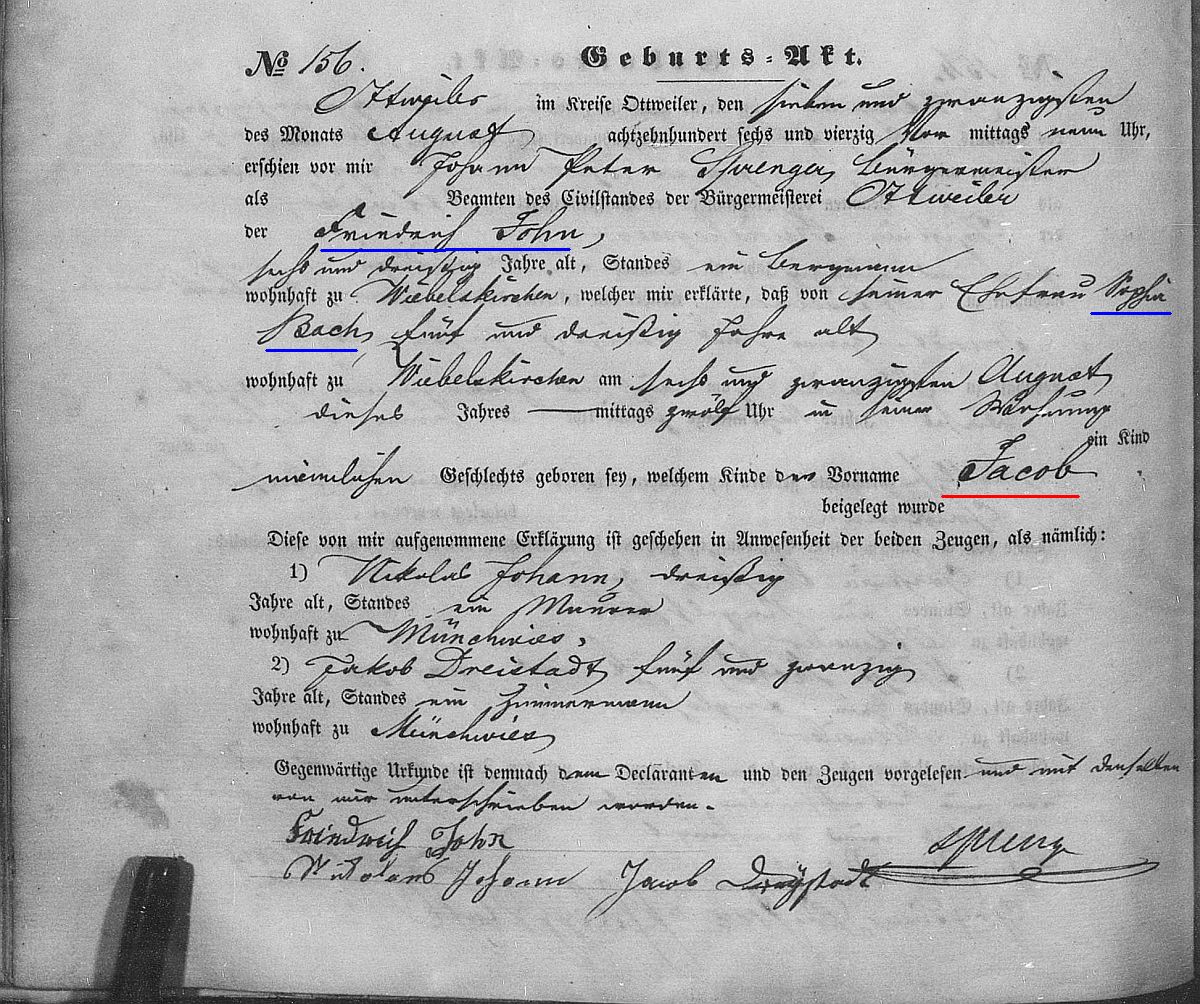 No 156. Geburts-Akt.
Ottweiler im Kreise Ottweiler, den sieben und zwanzigsten
des Monats August achtzehnhundert sechs und vierzig Vor mittags neun Uhr,
erschien vor mir Johann Peter Bürgermeister
als Beamten des Civilstandes der Bürgermeisterei Ottweiler
der Friedrich John,
sechs und dreißig Jahre alt, Standes ein Bergmann
wohnhaft zu Wiebelskirchen, welcher mir erklärte, daß von seiner Ehefrau Sophia
Bach, fünf und dreißig Jahre alt
wohnhaft zu Wiebelskirchen am sechs und zwanzigsten August
dieses Jahres mittags zwölf Uhr in seiner Wohnung
ein Kind
männlichen Geschlechts geboren sey, welchem Kinde der Vorname Jacob
beigelegt wurde
Diese von mir aufgenommene Erklärung ist geschehen in Anwesenheit der beiden Zeugen, als nämlich:
1) Nikolas Johann, dreißig
Jahre alt, Standes ein Maurer
wohnhaft zu Münchwies,
2) Jakob Dreistadt, fünf und zwanzig
Jahre alt, Standes ein Zimmermann
wohnhaft zu Münchwies
Gegenwärtige Urkunde ist demnach dem Declaranten und den Zeugen vorgelesen und mit denselben
von mir unterschrieben worden.
Friedrich John
Nikolaus Johann Jacob Dreystadt